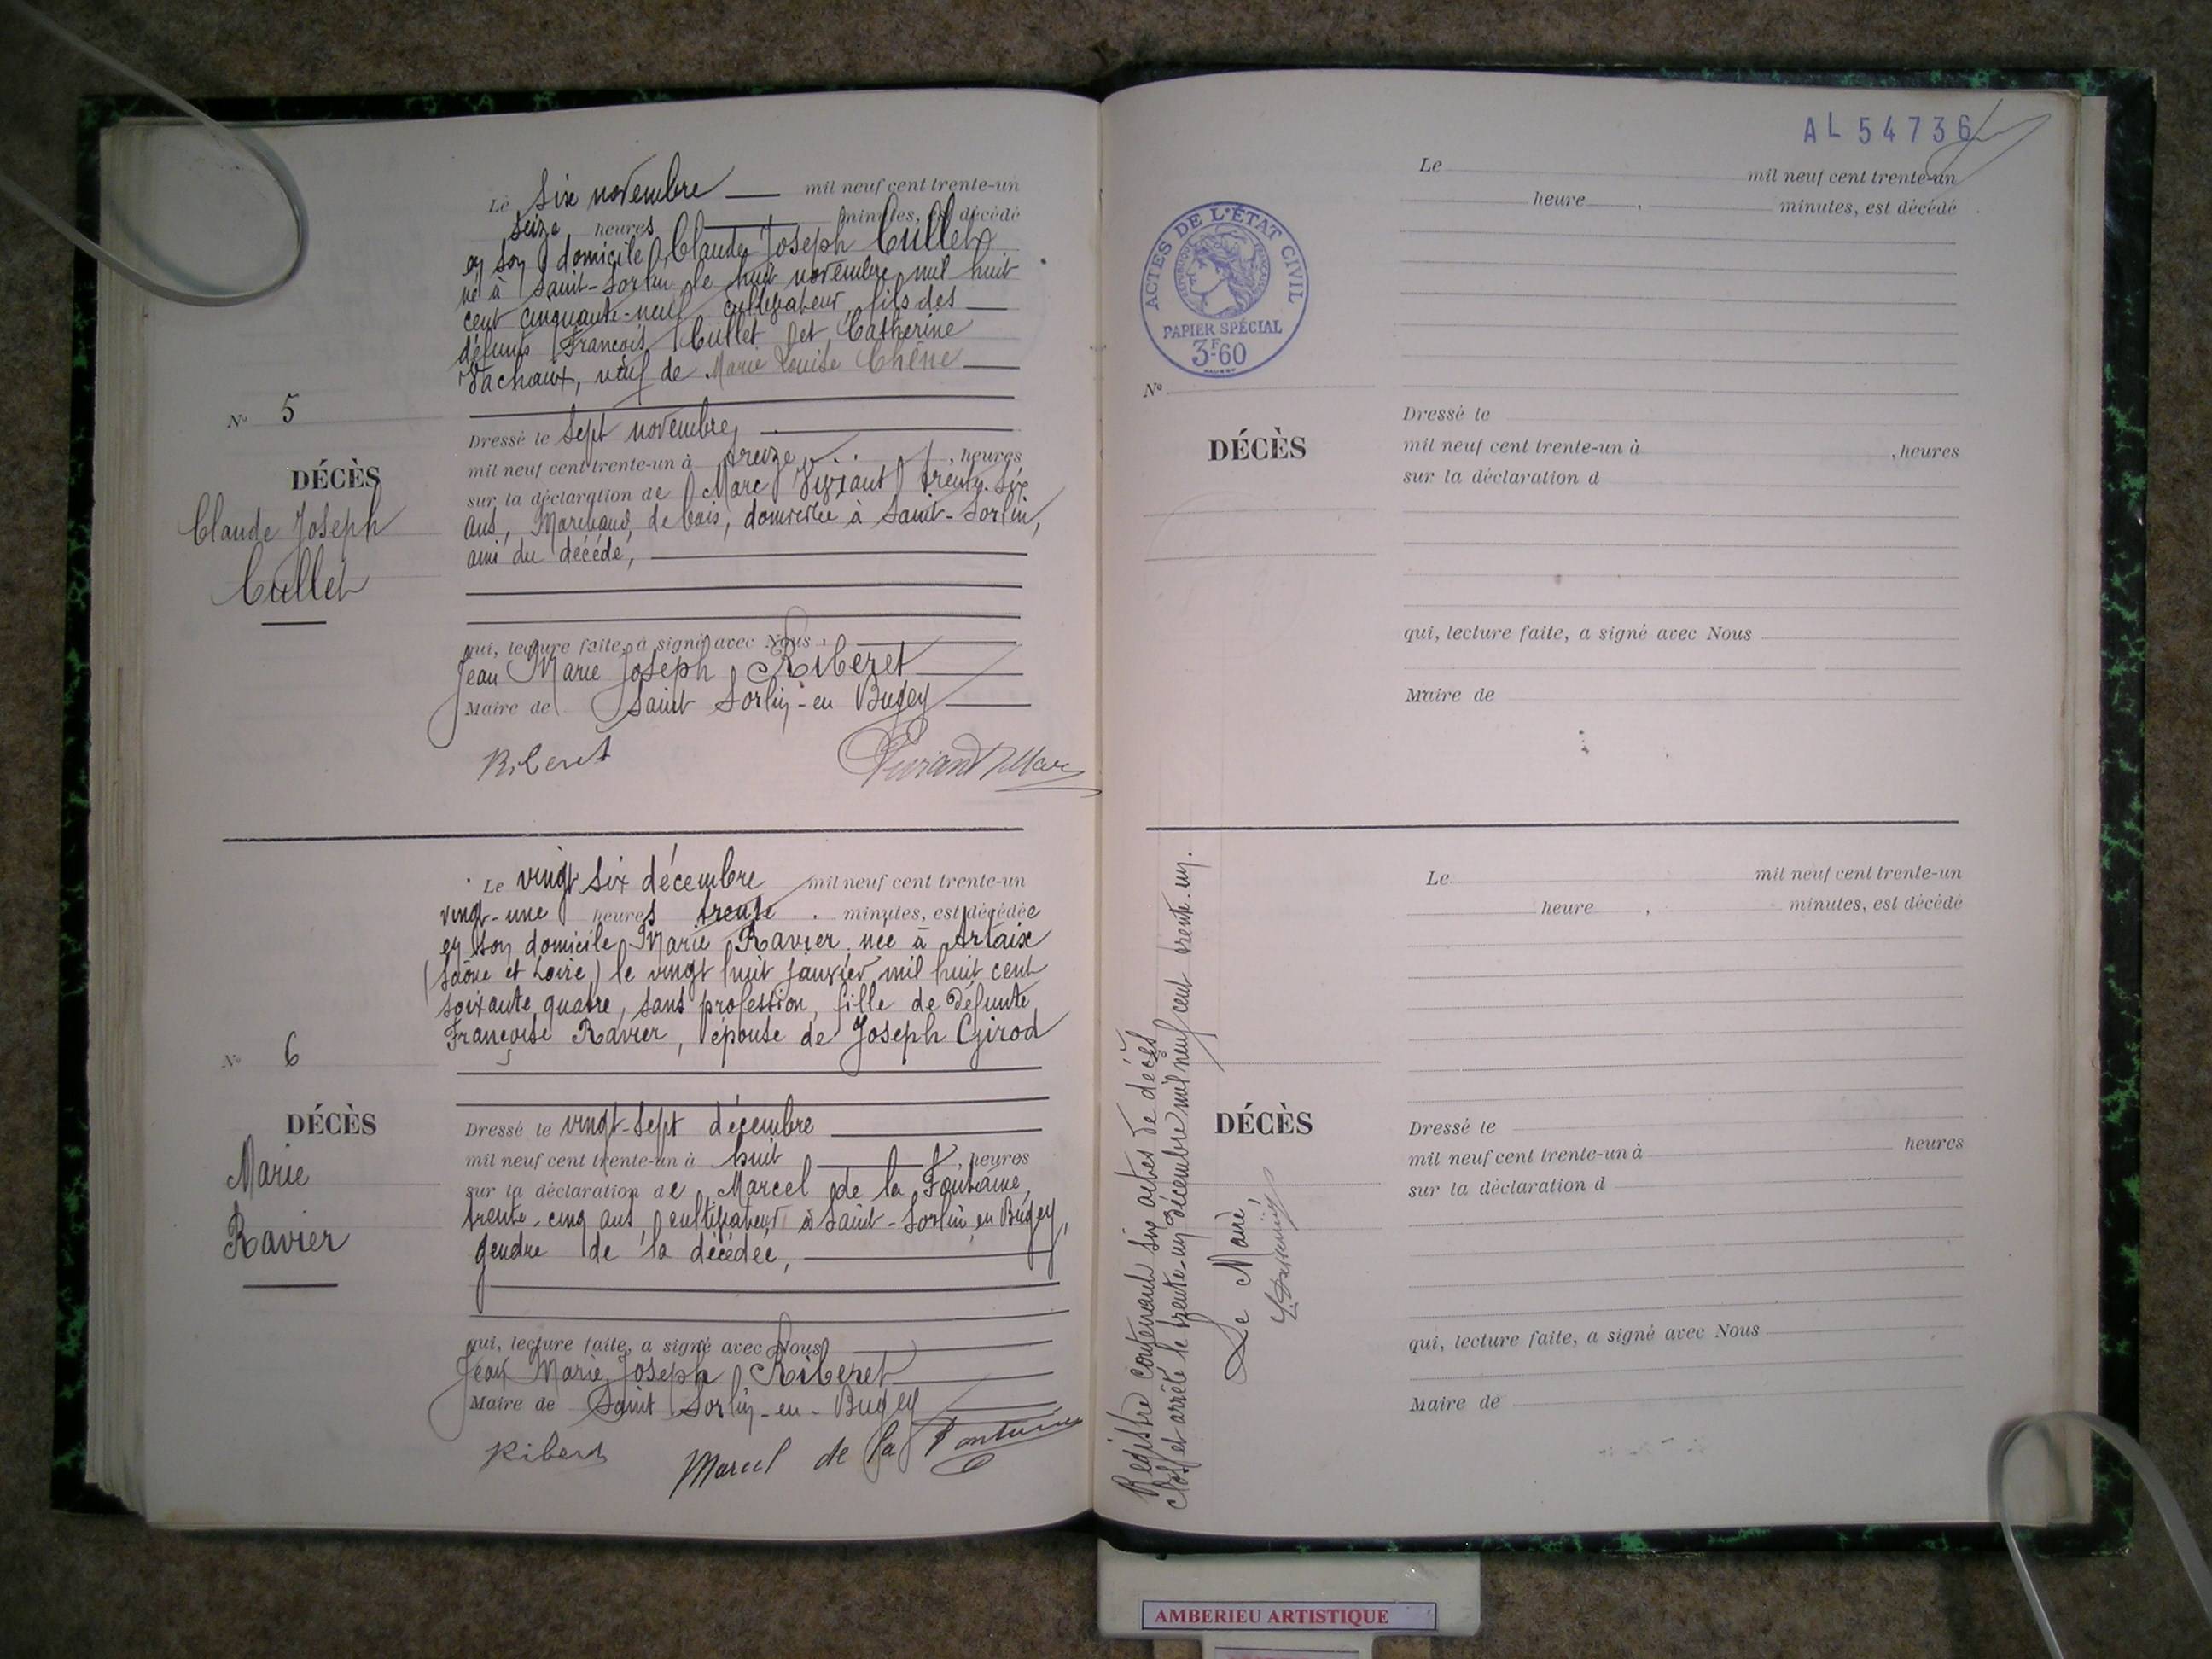 Le six novembre mil neuf cent trente-un
seize heures minutes, est décédé
en son domicile Claude Joseph Cullet
né à Saint-Sorlin le huit novembre mil huit
cent cinquante-neuf cultivateur, fils des
défunts François Cullet et Catherine
Vachoux, veuf de Marie Louise Chêne
N° 5
DÉCÈS
Claude Joseph
Cullet
Dressé le sept novembre
mil neuf cent trente-un à treize, heures
sur la déclaration de Marc Viviant trente-six
ans, Marchand de bois, domicilié à Saint-Sorlin,
ami du décédé,
qui, lecture faite, a signé avec Nous
Jean Marie Joseph Riberet
Maire de Saint Sorlin-en Bugey
Riberet
Le vingt six décembre mil neuf cent trente-un
vingt-une heures trente minutes, est décédée
en son domicile Marie Ravier née à Artaix
(Saône et Loire) le vingt huit janvier mil huit cent
soixante quatre, sans profession, fille de défunte
Françoise Ravier, épouse de Joseph Girod
N° 6
DÉCÈS
Marie
Ravier
Dressé le vingt-sept décembre
mil neuf cent trente-un à huit, heures
sur la déclaration de Marcel de la Fontaine,
trente-cinq ans, cultivateur à Saint-Sorlin en Bugey,
gendre de la décédée,
qui, lecture faite, a signé avec Nous
Jean Marie Joseph Riberet
Maire de Saint Sorlin-en-Bugey
Riberet Marcel de la Fontaine
AL 54736
Le mil neuf cent trente-un
heure , minutes, est décédé
ACTES DE L'ÉTAT CIVIL
RÉPUBLIQUE FRANÇAISE
PAPIER SPÉCIAL
3F60
N°
DÉCÈS
Dressé le
mil neuf cent trente-un à , heures
sur la déclaration d
qui, lecture faite, a signé avec Nous
Maire de
Registre contenant six actes de décès
clos et arrêté le trente-un décembre mil neuf cent trente-un.
Le Maire
Le mil neuf cent trente-un
heure , minutes, est décédé
DÉCÈS
Dressé le
mil neuf cent trente-un à heures
sur la déclaration d
qui, lecture faite, a signé avec Nous
Maire de
AMBERIEU ARTISTIQUE